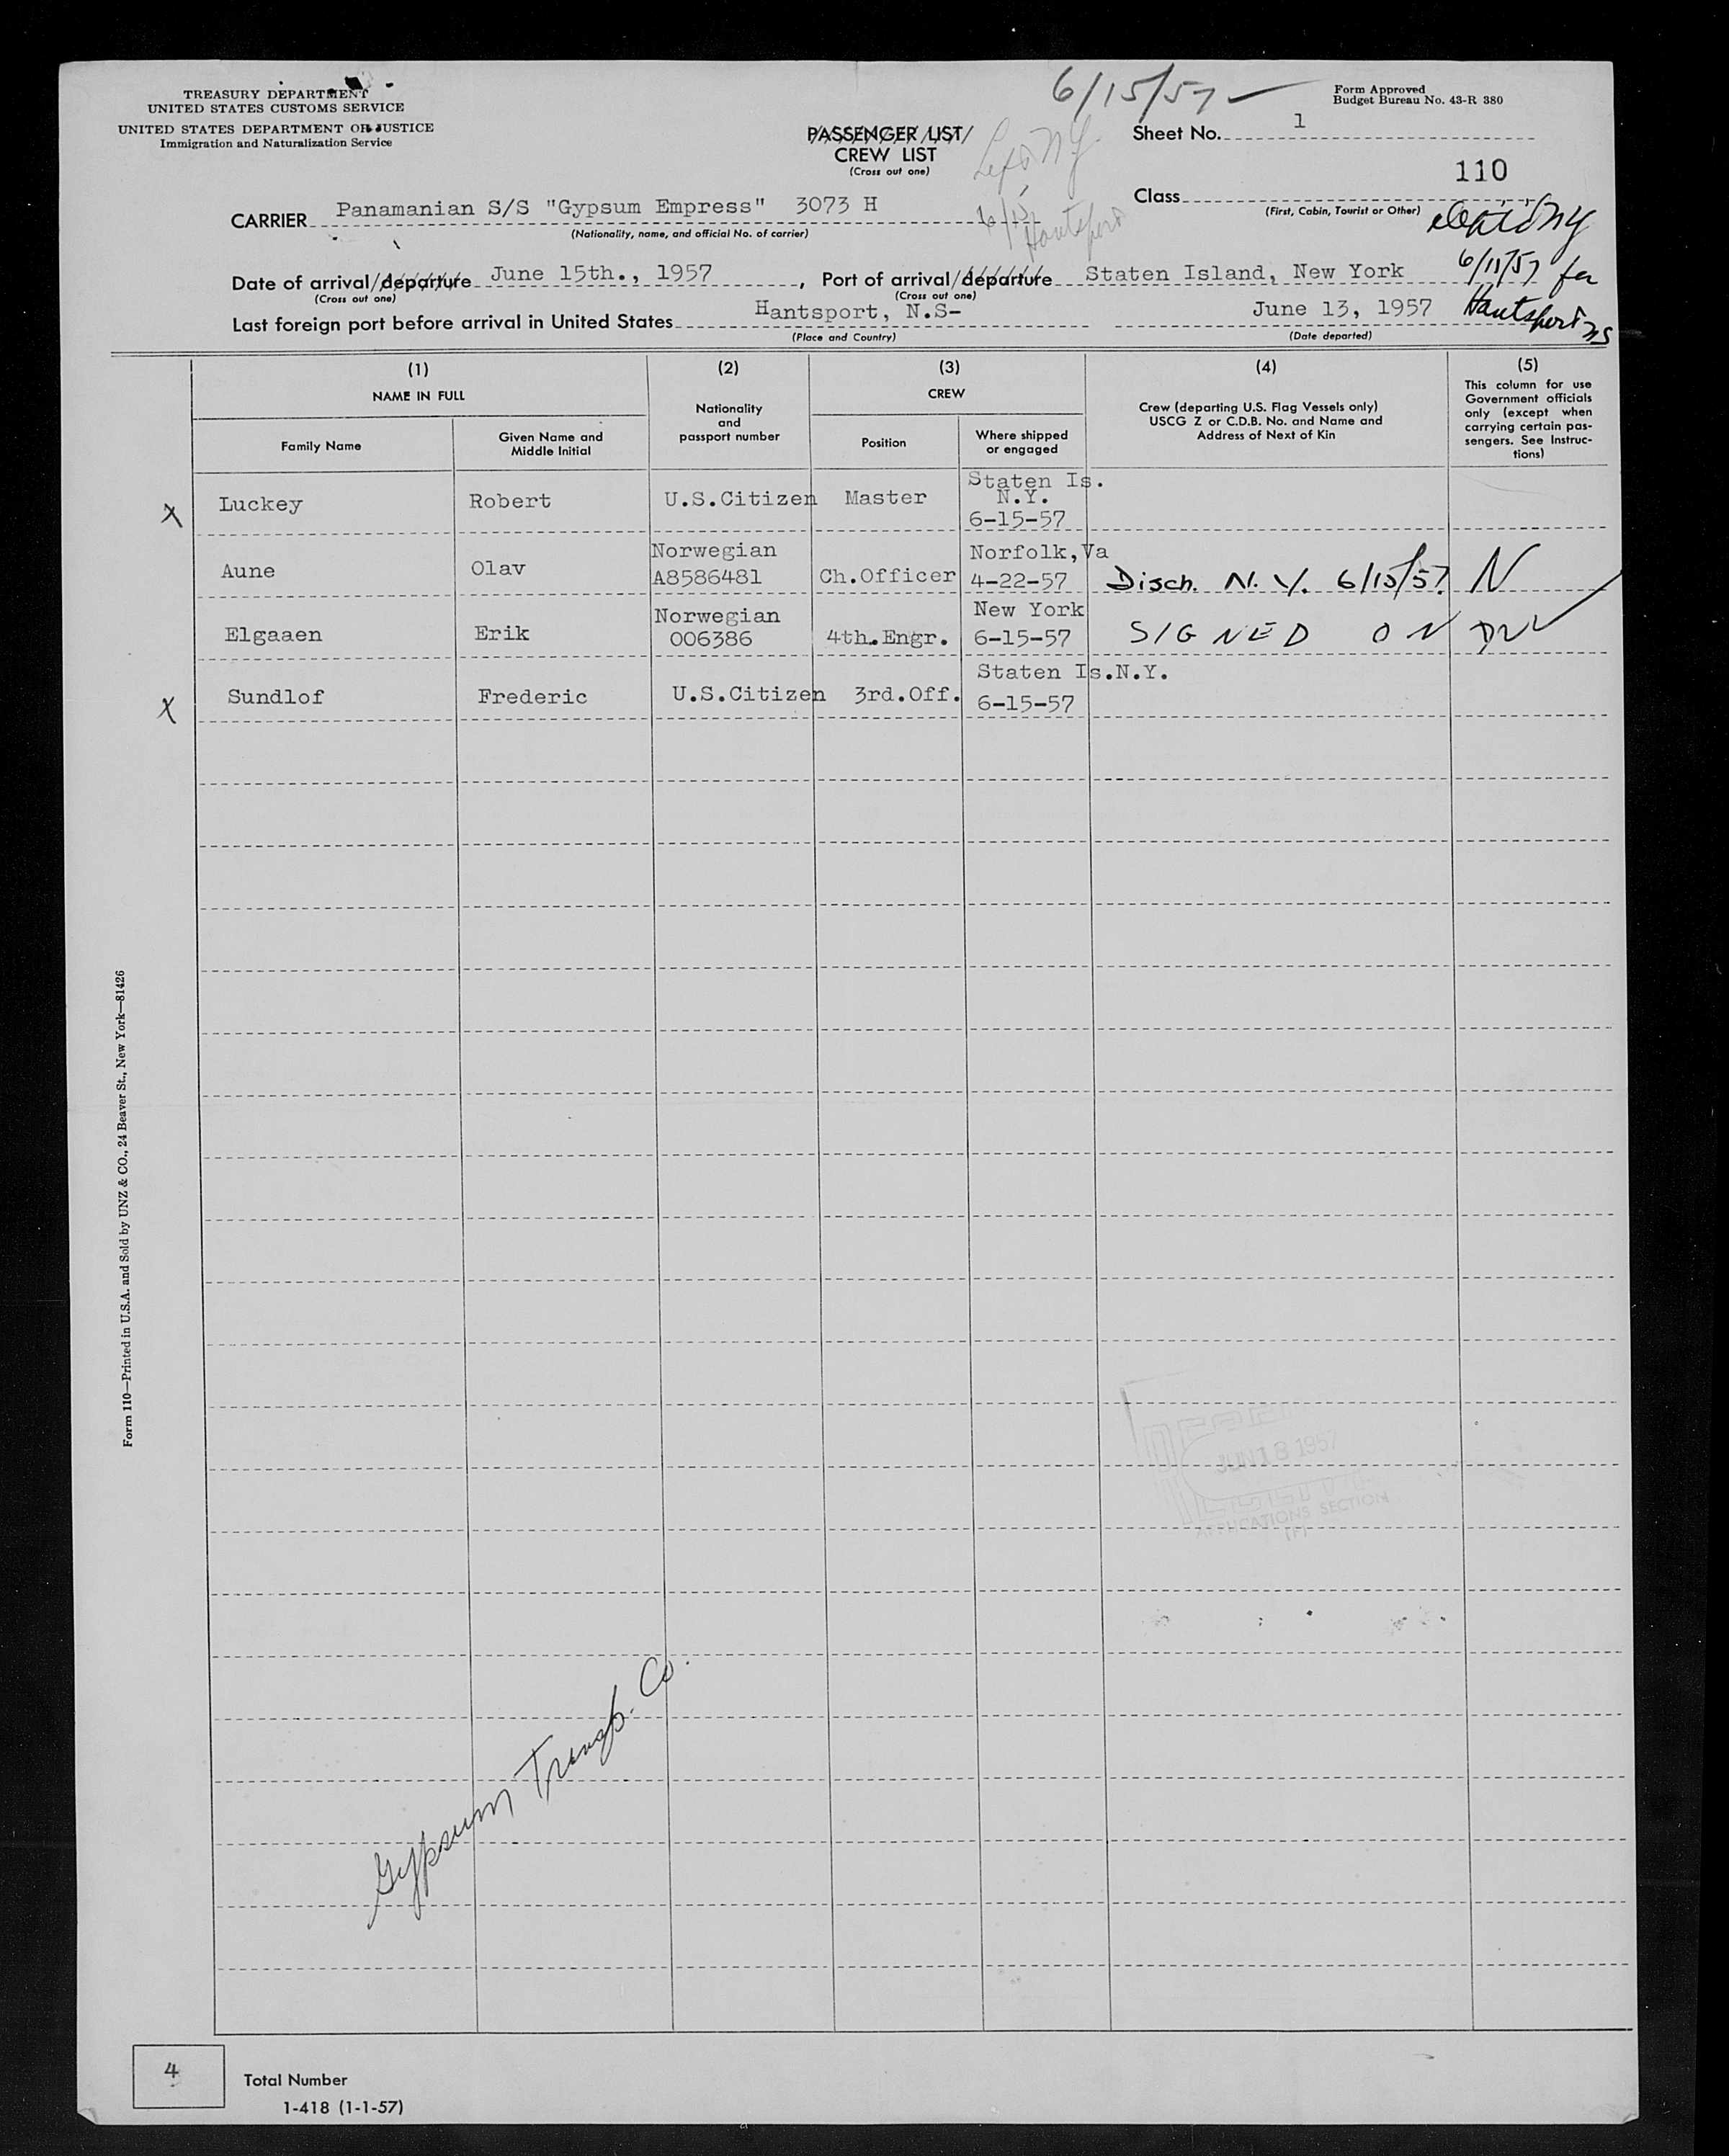 TREASURY DEPARTMENT
UNITED STATES CUSTOMS SERVICE
UNITED STATES DEPARTMENT OF JUSTICE
Immigration and Naturalization Service
6/15/57
Form Approved
Budget Bureau No. 43-R 380
PASSENGER LIST/
CREW LIST
(Cross out one)
Sheet No. 1
110
N.Y.
6/15
Hantsport
Class
(First, Cabin, Tourist or Other)
CARRIER Panamanian S/S "Gypsum Empress" 3073 H
(Nationality, name, and official No. of carrier)
NY
6/15/57 for
Hantsport NS
Date of arrival/departure June 15th., 1957, Port of arrival/departure Staten Island, New York
(Cross out one) (Cross out one)
Last foreign port before arrival in United States Hantsport, N.S- June 13, 1957
(Place and Country) (Date departed)
(1) (2) (3) (4) (5)
NAME IN FULL
Family Name
Given Name and
Middle Initial
Nationality
and
passport number
CREW
Position
Where shipped
or engaged
Crew (departing U.S. Flag Vessels only)
USCG Z or C.D.B. No. and Name and
Address of Next of Kin
This column for use
Government officials
only (except when
carrying certain pas-
sengers. See Instruc-
tions)
Staten Is.
N.Y.
X Luckey Robert U.S.Citizen Master
6-15-57
Norwegian Norfolk,Va
Aune Olav A8586481 Ch.Officer 4-22-57 Disch. N.Y. 6/15/57. N
Norwegian New York
Elgaaen Erik 006386 4th.Engr. 6-15-57 SIGNED ON
Staten Is.N.Y.
X Sundlof Frederic U.S.Citizen 3rd.Off.
6-15-57
JUN 18 1957
APPLICATIONS SECTION
Gypsum Transp. Co.
Form 110—Printed in U.S.A. and Sold by UNZ & CO., 24 Beaver St., New York—81426
4 Total Number
1-418 (1-1-57)